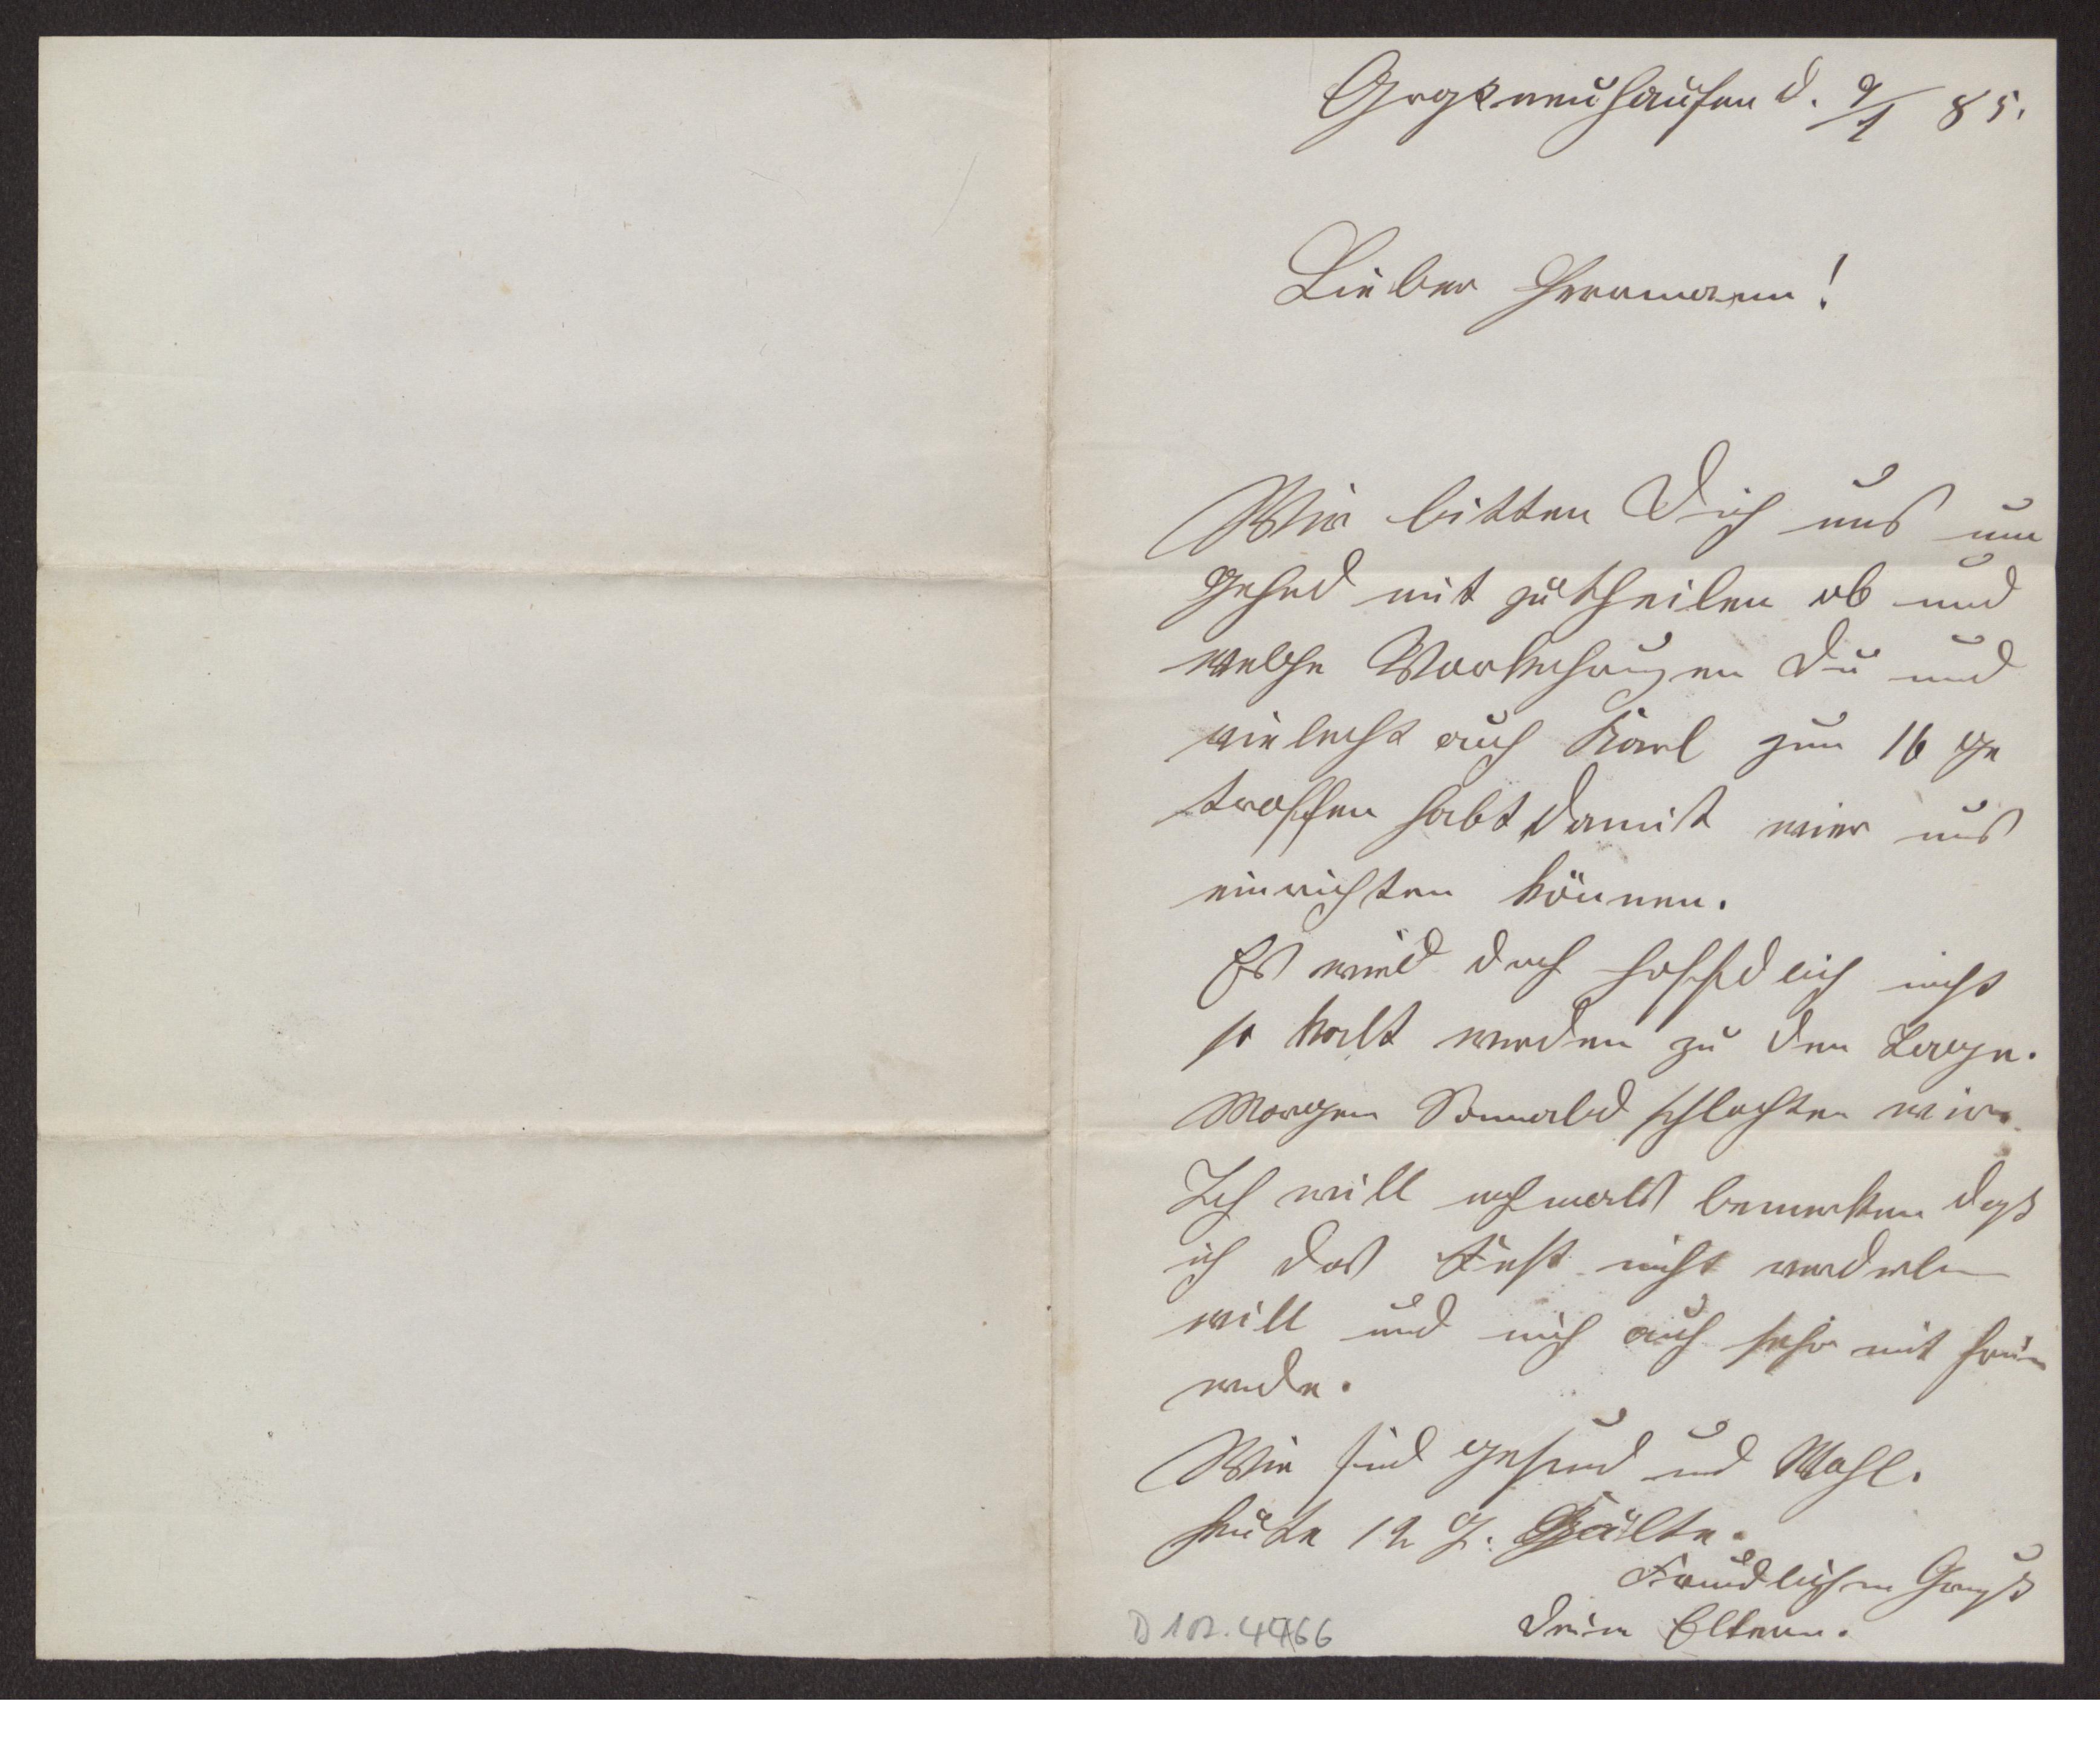 Großneuhausen d. 9/1 85.
Lieber Herrmann!
Wir bitten Dich uns um
gehed mit zutheilen ob und
welche Vorkehrungen Du und
vielecht auch Karl zum 16 ge
troffen habt, damit wier uns
einrichten können.
Es wird doch hoffedlich nicht
so kalt werden zu den Tage.
Morgen Sonnabd schlachten wir.
Ich will nochmals bemerken daß
ich das Fest nicht verderben
will und mich auch sehr mit freun
werde.
Wir sind gesund und Wohl.
heute 12 g. Kälte.
Freundlichen Gruß
Deine Eltern.
D 102.4466